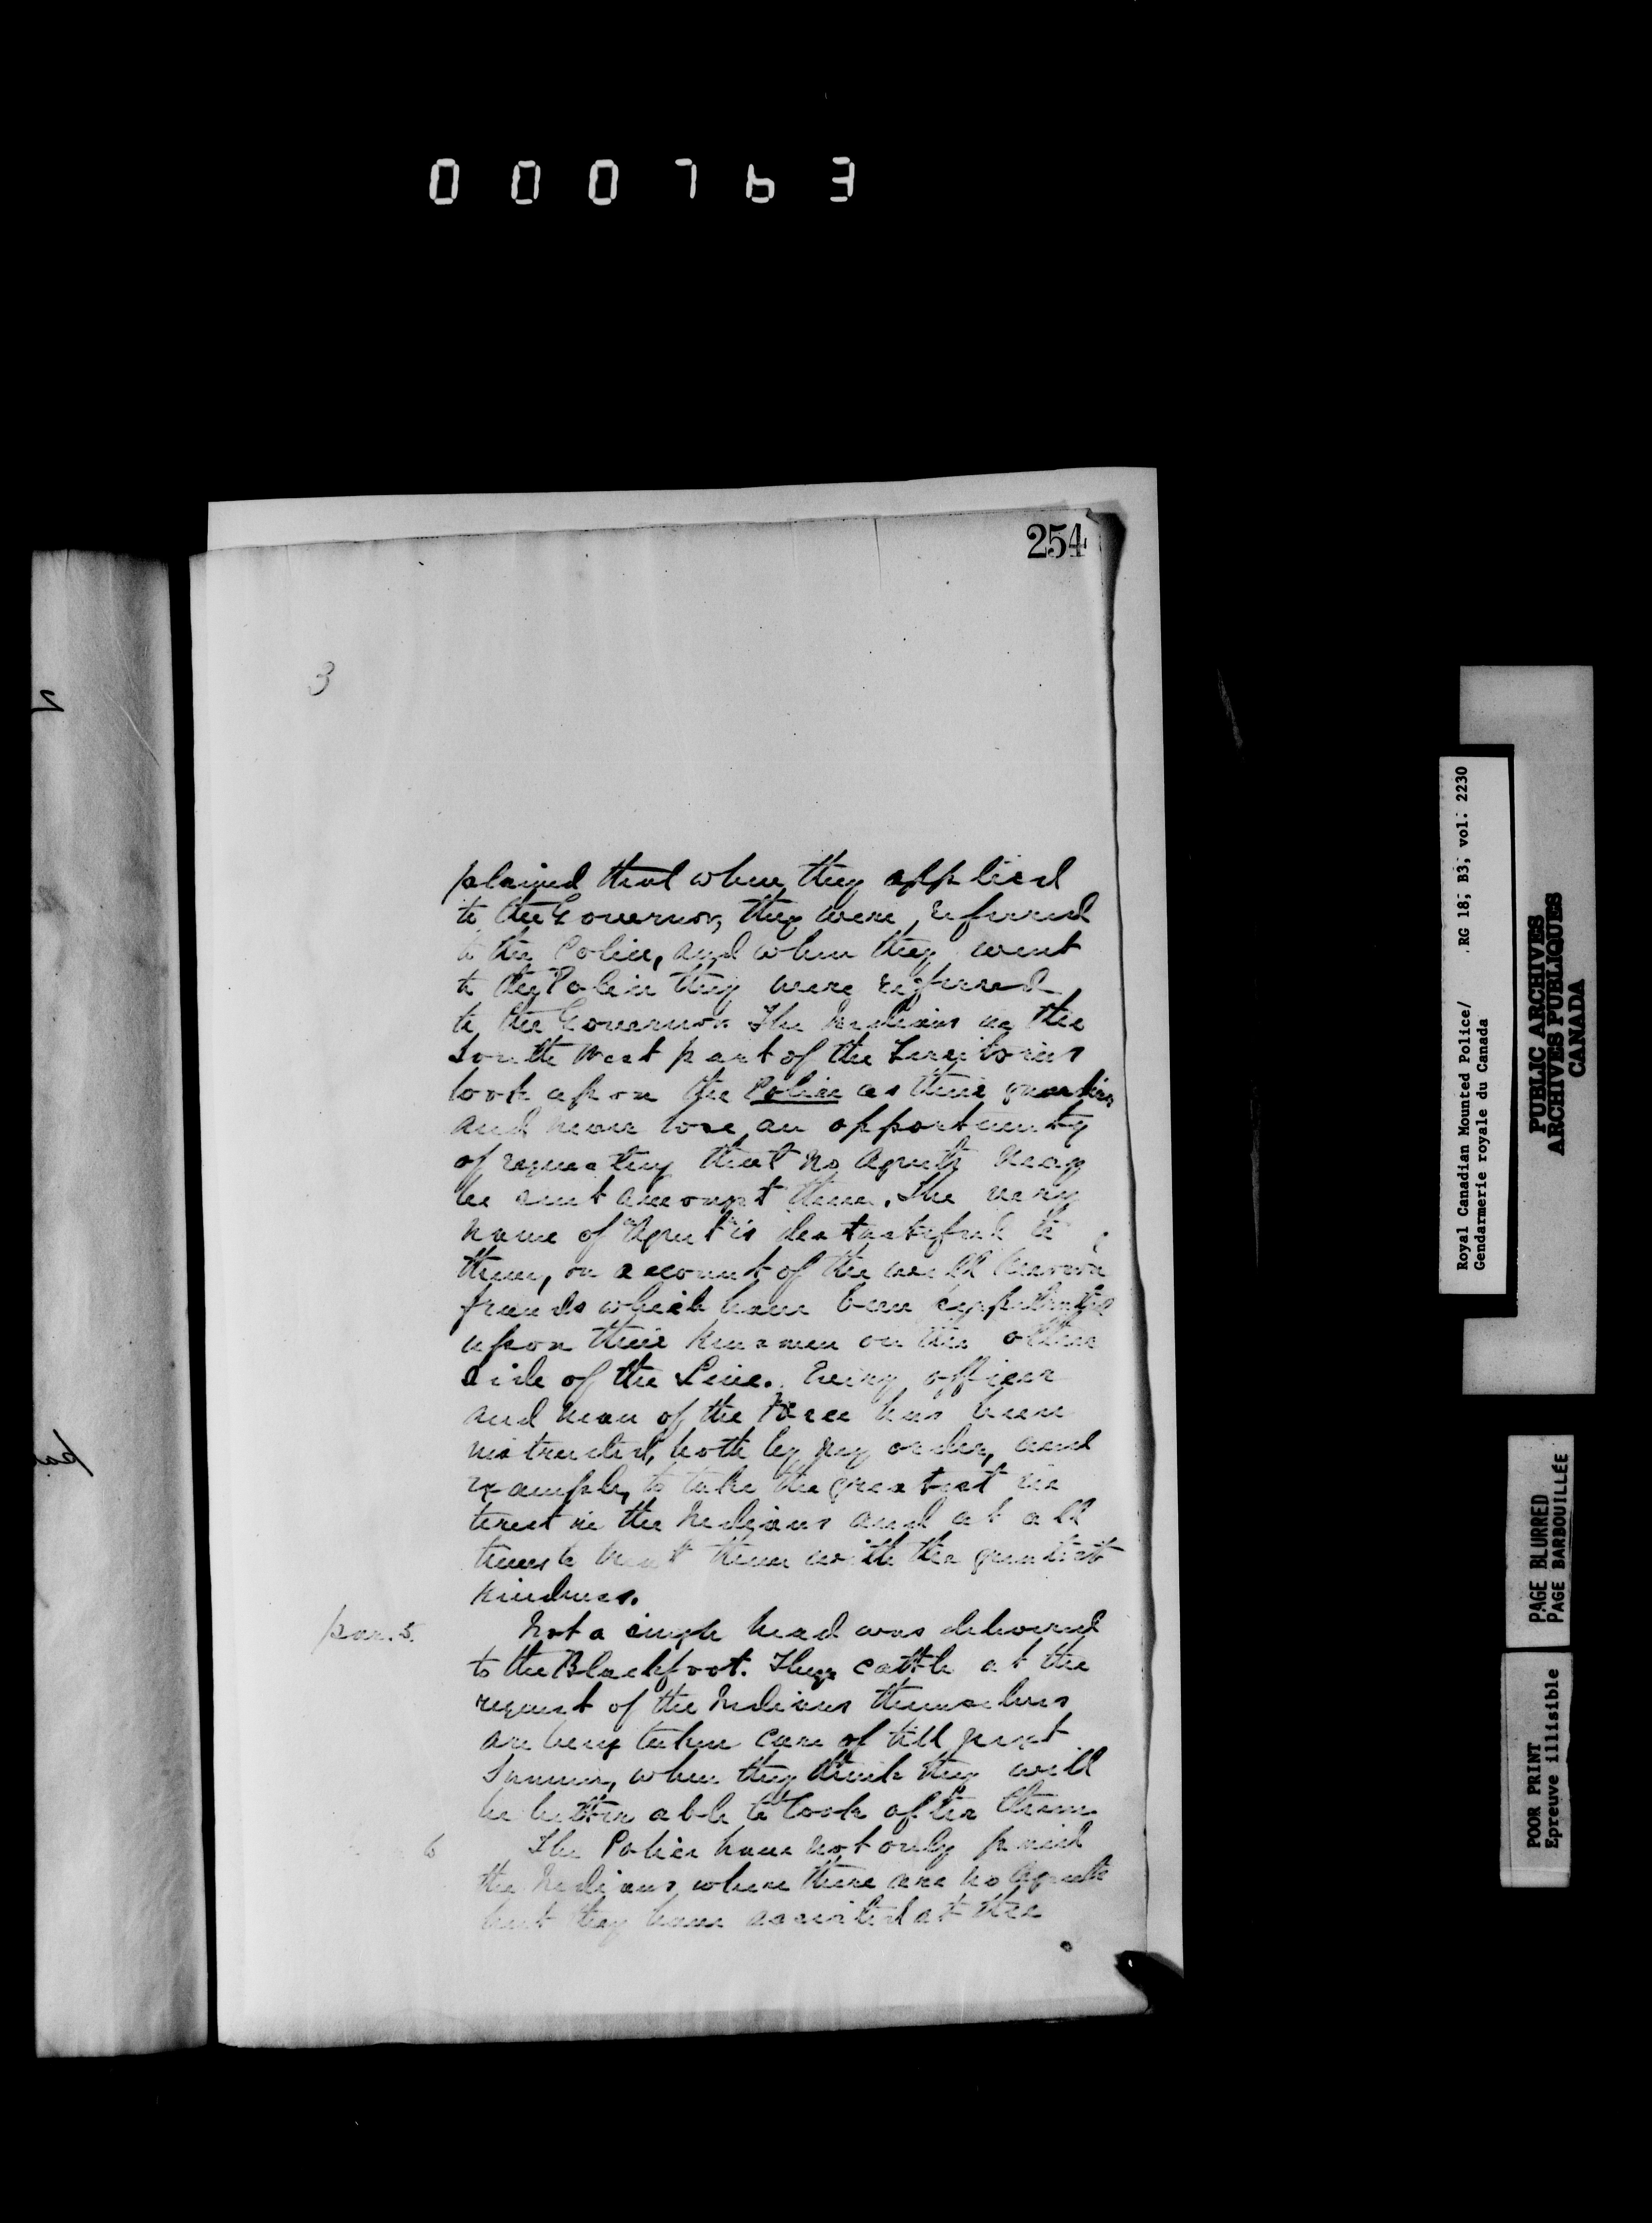 000763
254
3
plained that when they applied
to the Governor, they were referred
to the Police, and when they went
to the Police they were referred
to the Governor. The Indians in the
South West part of the Territories
look upon the Police as their guardians
and never lose an opportunity
of requesting that no Agents may
be sent amongst them. The very
name of "Agent" is distasteful to
them, on account of the well known
frauds which have been perpetrated
upon their kinsmen on the other
side of the Line. Every officer
and man of the Force has been
instructed, both by my order, and
example, to take the greatest in
terest in the Indians and at all
times to treat them with the greatest
kindness.
par. 5. Not a single head was delivered
to the Blackfoot. Their cattle at the
request of the Indians themselves
are being taken care of till next
Summer, when they think they will
be better able to look after them.
6 The Police have not only paid
the Indians where there are no Agents
but they have assisted at the
2
Royal Canadian Mounted Police/ RG 18; B3; vol: 2230
Gendarmerie royale du Canada
PUBLIC ARCHIVES
ARCHIVES PUBLIQUES
CANADA
PAGE BLURRED
PAGE BARBOUILLÉE
POOR PRINT
Epreuve illisible